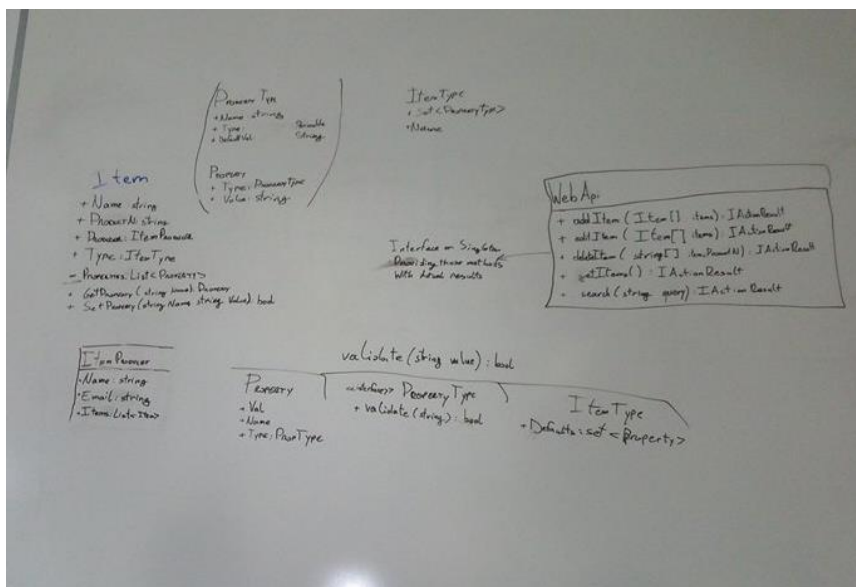 Property Type
+ Name: string
+ Type:
+ DefaultVal String
Property
+ Type: PropertyType
+ Value: string
ItemType
+ Set<PropertyType>
+ Name
Item
+ Name string
+ ProducerN: string
+ Type: ItemType
- Properties: List<Property>
+ GetProperty (string Name): Property
+ SetProperty (string Name string Value): bool
Interface or Singleton
Providing those methods
With Actual results
WebApi
+ addItem (Item[] items): IActionResult
+ editItem (Item[] items): IActionResult
+ deleteItem (string[]): IActionResult
+ getItems(): IActionResult
+ search(string query): IActionResult
Item Producer
+ Name: string
+ Email: string
+ Items: List<Item>
validate (string value): bool
Property
+ Val
+ Name
+ Type: PropType
<<interface>> PropertyType
+ validate (string): bool
ItemType
+ Defaults: set <Property>